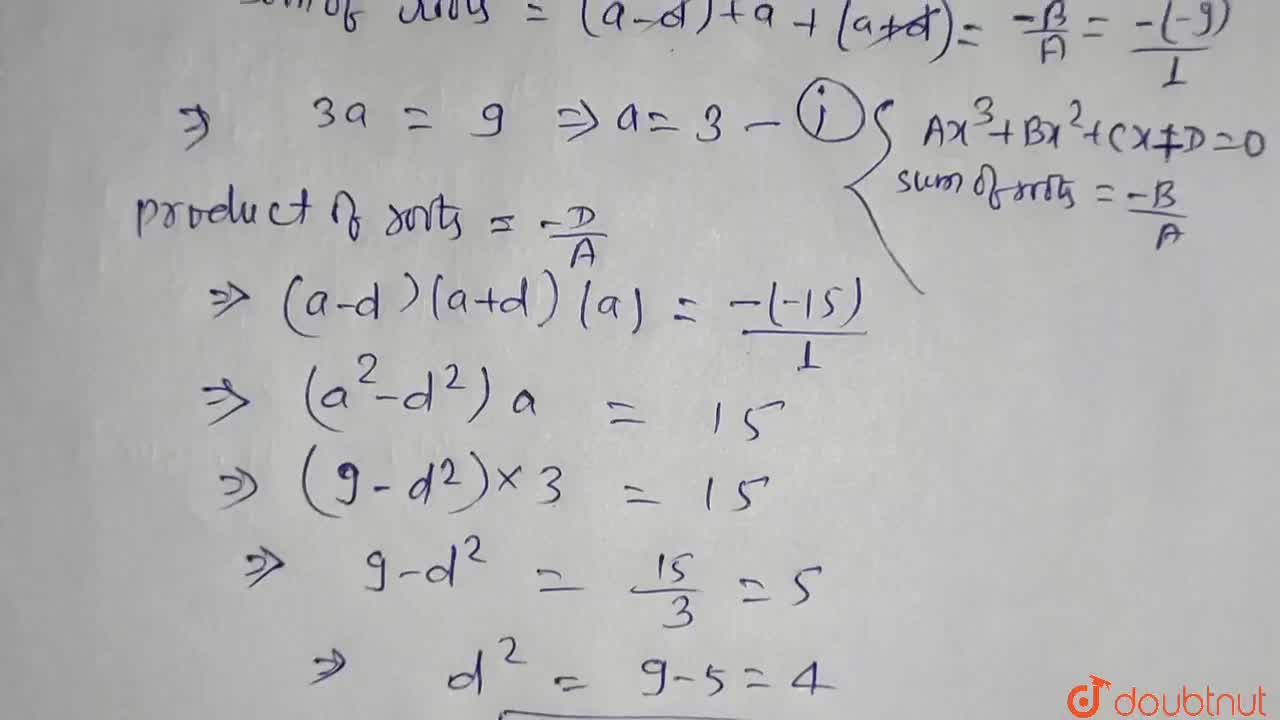 of roots = (a-d)+a+(a+d) = -B/A = -(-9)/1
⇒ 3a = 9 ⇒ a = 3 - (i)
Ax³+Bx²+Cx+D=0
sum of roots = -B/A
product of roots = -D/A
⇒ (a-d)(a+d)(a) = -(-15)/1
⇒ (a²-d²)a = 15
⇒ (9-d²)×3 = 15
⇒ 9-d² = 15/3 = 5
⇒ d² = 9-5=4
doubtnut